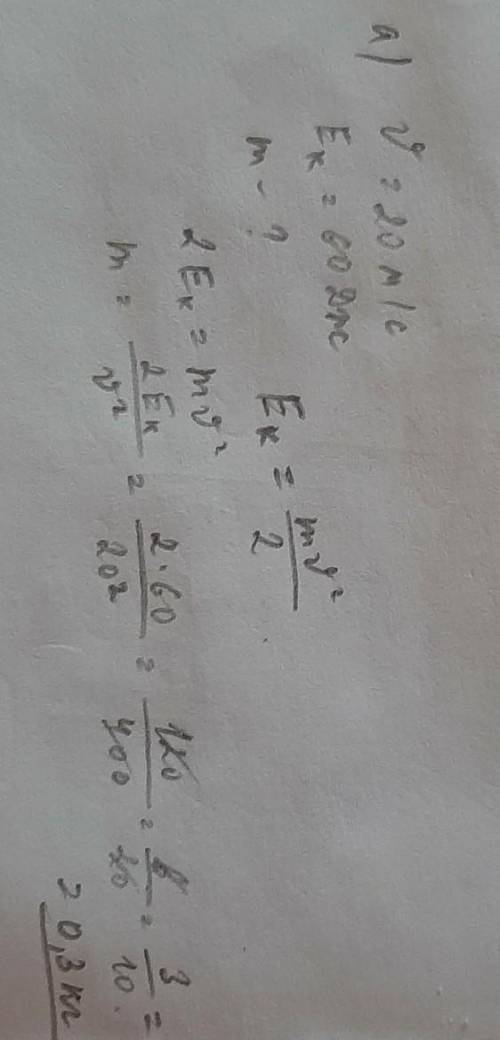 а) v = 20 м/с
Eк = 60 Дж
m - ?
Eк = mv²/2
2Eк = mv²
m = 2Eк/v² = 2·60/20² = 120/400 = 6/20 = 3/10 =
= 0,3 кг